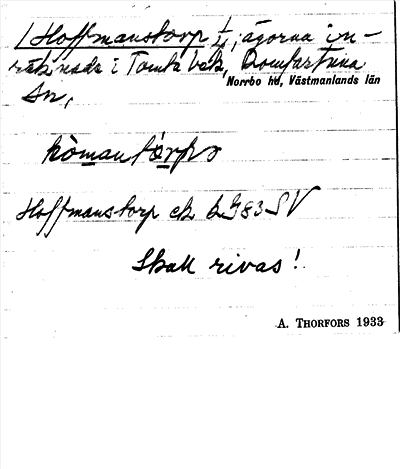 Hoffmanstorp 1/1, ägorna in-
räknade i Tomta bak, Romfartuna
Norrbo hd, Västmanlands län
sn,
hòmantårp
Hoffmanstorp ek bl 83 SV
Skall rivas!
A. THORFORS 1933